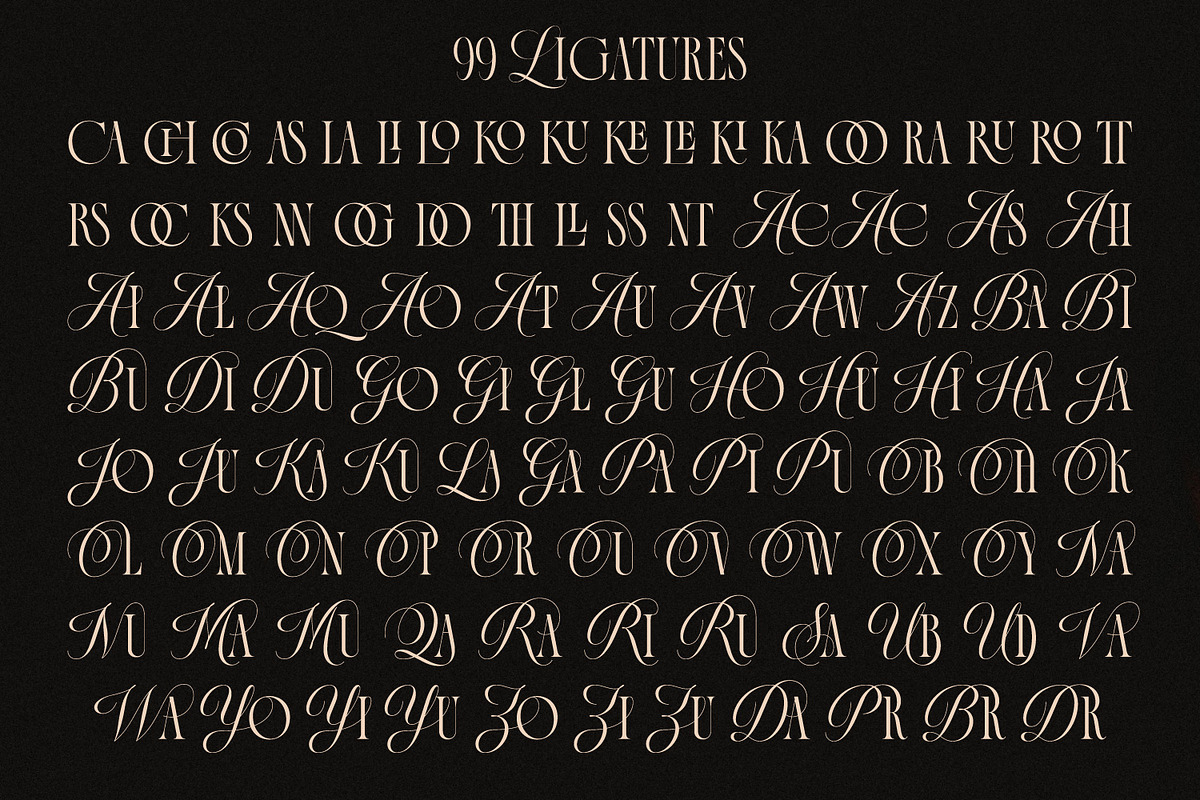 99 LIGATURES
CA CH CO AS LA LI LO KO KU KE LE KI KA OO RA RU RO TT
RS OC KS NN OG DO TH LL SS NT AC AC AS AH
AI AL AQ AO AT AU AV AW AZ BA BI
BU DI DU GO GI GL GU HO HU HI HA JA
JO JU KA KU LA GA PA PI PU OB OH OK
OL OM ON OP OR OU OV OW OX OY NA
NU MA MU QA RA RI RU SA UB UD VA
WA YO YI YU ZO ZI ZU DA PR BR DR